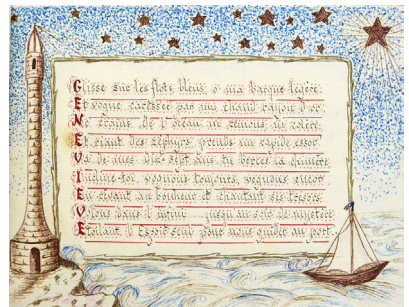 Glisse sur les flots bleus, ô ma barque légère
Et vogue caressée par un chaud rayon d'or
Ne crains de l'eau ni remous ni colère
Et riant des zéphyrs, prends un rapide essor
Va de mes dix-sept ans tu berces la chimère
Incline-toi, voguons toujours, voguons encor
En rêvant au bonheur et chantant ses trésors
Volons dans l'infini jusqu'au soir de mystère
Etoilant l'Espoir seul pour nous guider au port.